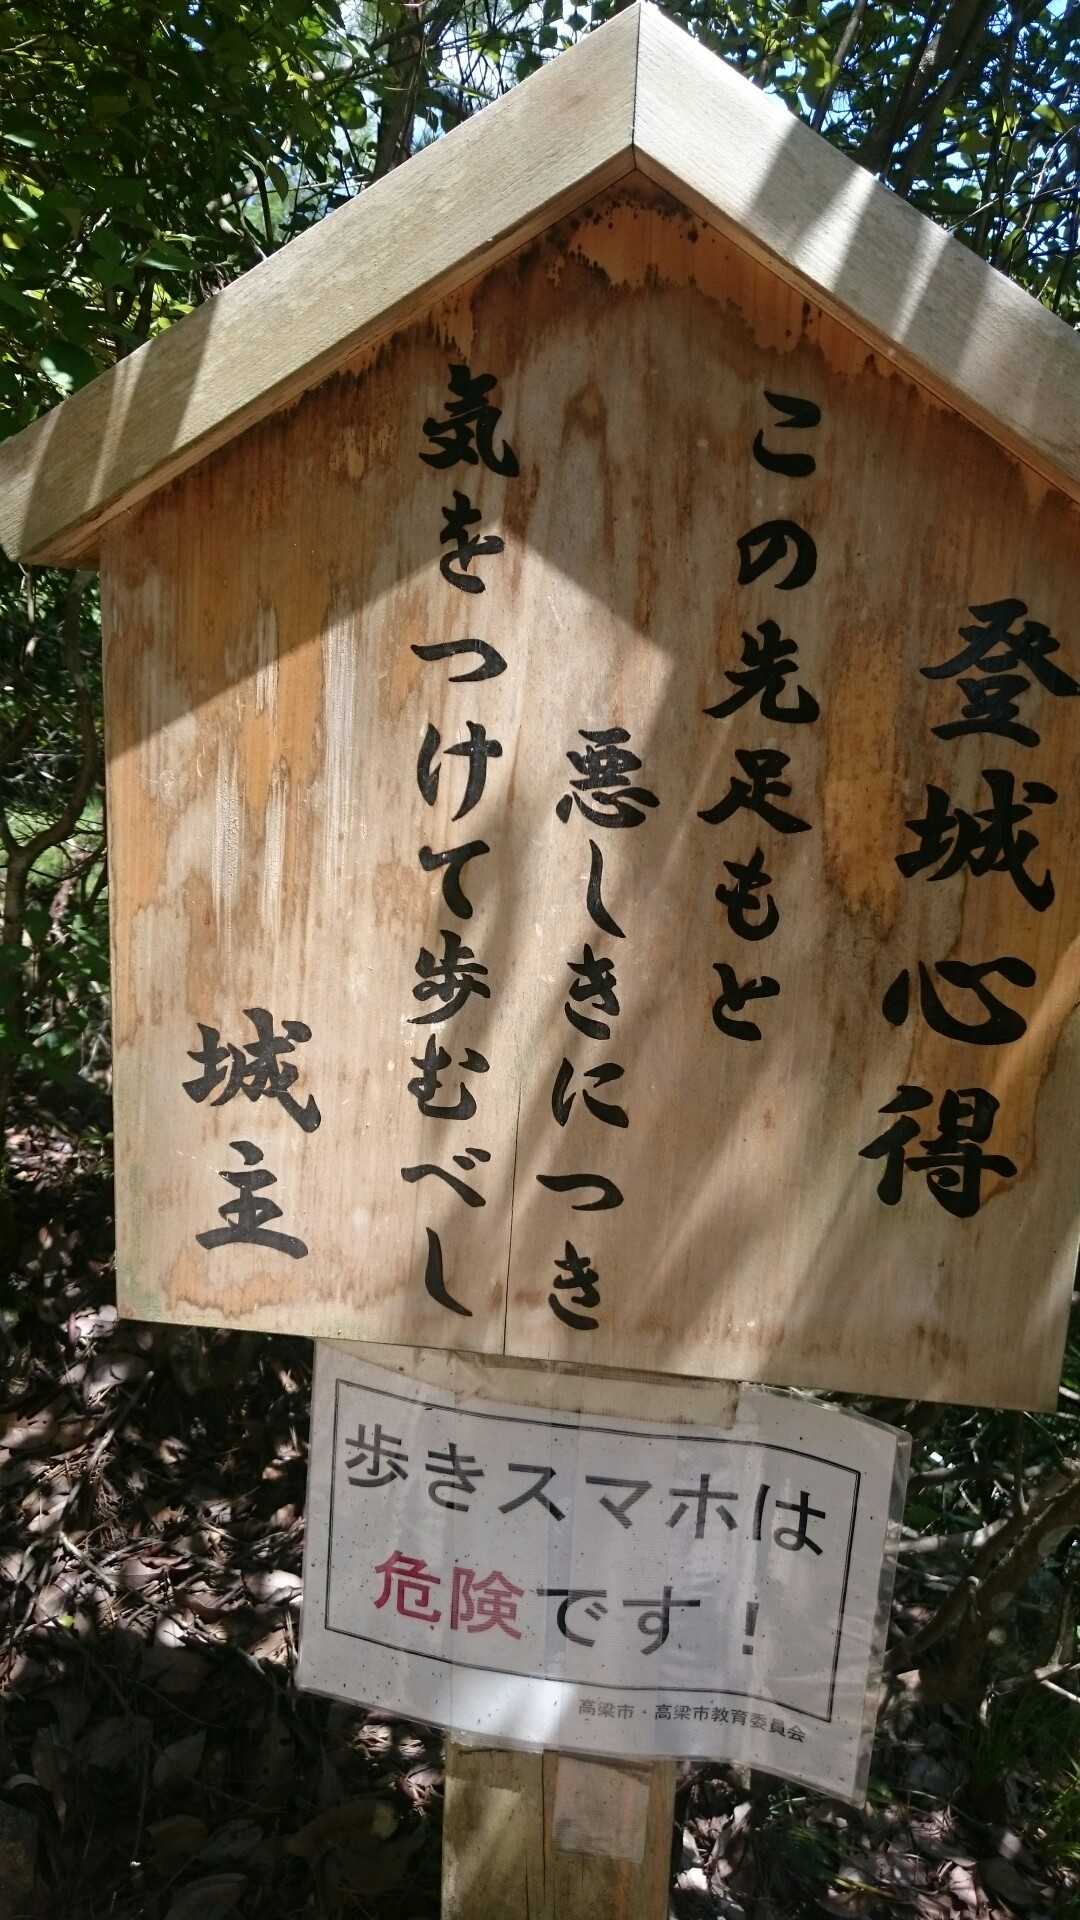 登城心得
この先足もと
悪しきにつき
気をつけて歩むべし
城主
歩きスマホは
危険です！
高梁市・高梁市教育委員会